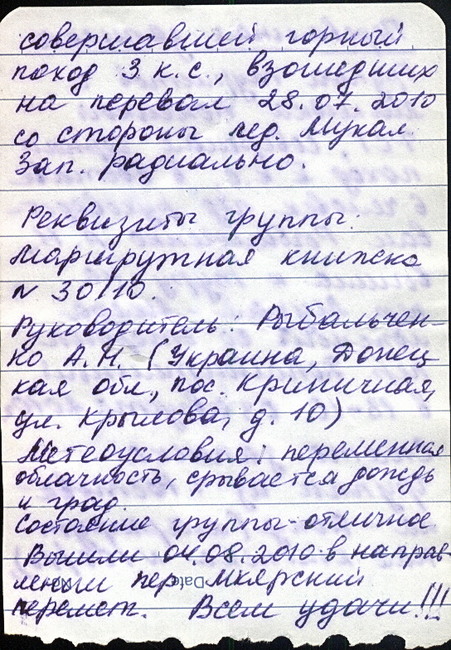 совершавшей горный
поход 3 к.с., взошедших
на перевал 28.07.2010
со стороны лед. Мукал
Зап. радиально.
Реквизиты группы:
Маршрутная книжка
N 30/10.
Руководитель: Рыбальчен-
ко А.Н. (Украина, Донец
кая обл., пос. Криничная,
ул. Крылова, д. 10)
Метеоусловия: переменная
облачность, срывается дождь
и град.
Состояние группы-отличное
Вышли 04.08.2010 в направ-
лении пер. Мкярский
перемет. Всем удачи!!!
Date
No